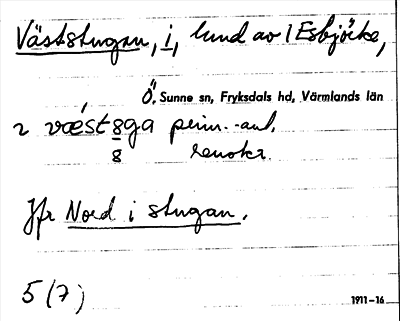 Väststugan, i, lund av 1 Esbjörke,
Ö, Sunne sn, Fryksdals hd, Värmlands län
2 vǽst 8ga perm.-aut.
8
Jfr Nord i stugan.
5 (7)
1911-16